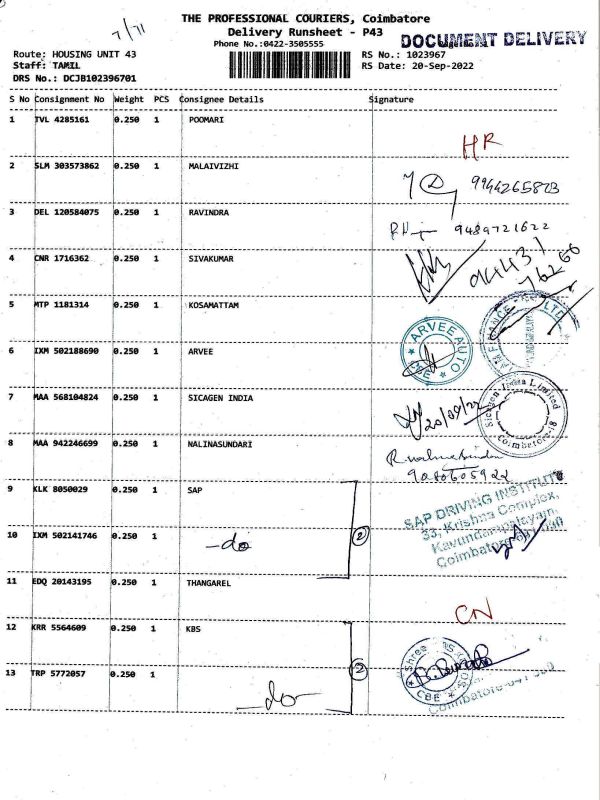 7/71
THE PROFESSIONAL COURIERS, Coimbatore
Delivery Runsheet - P43
Phone No.:0422-3505555
DOCUMENT DELIVERY
Route: HOUSING UNIT 43
Staff: TAMIL
DRS No.: DCJB102396701
RS No.: 1023967
RS Date: 20-Sep-2022
S No Consignment No Weight PCS Consignee Details Signature
1 TVL 4285161 0.250 1 POOMARI
HR
2 SLM 303573862 0.250 1 MALAIVIZHI
3 DEL 120584075 0.250 1 RAVINDRA
9489721622
4 CNR 1716362 0.250 1 SIVAKUMAR
94431
76266
5 MTP 1181314 0.250 1 KOSAMATTAM
6 IXM 502188690 0.250 1 ARVEE
ARVEE AUTO
CBE
7 MAA 568104824 0.250 1 SICAGEN INDIA
20/09/22
Sicagen India Limited
Coimbatore-18
8 MAA 942246699 0.250 1 NALINASUNDARI
9080605922
9 KLK 8050029 0.250 1 SAP
SAP DRIVING INSTITUTE
33, Krishna Complex,
Kavundampalayam,
Coimbatore
10 IXM 502141746 0.250 1 -do
2
11 EDQ 20143195 1 THANGAREL
CN
12 KRR 5564609 0.250 1 KBS
Shree
CBE
Coimbatore-641
13 TRP 5772057 0.250 1 -do-
2